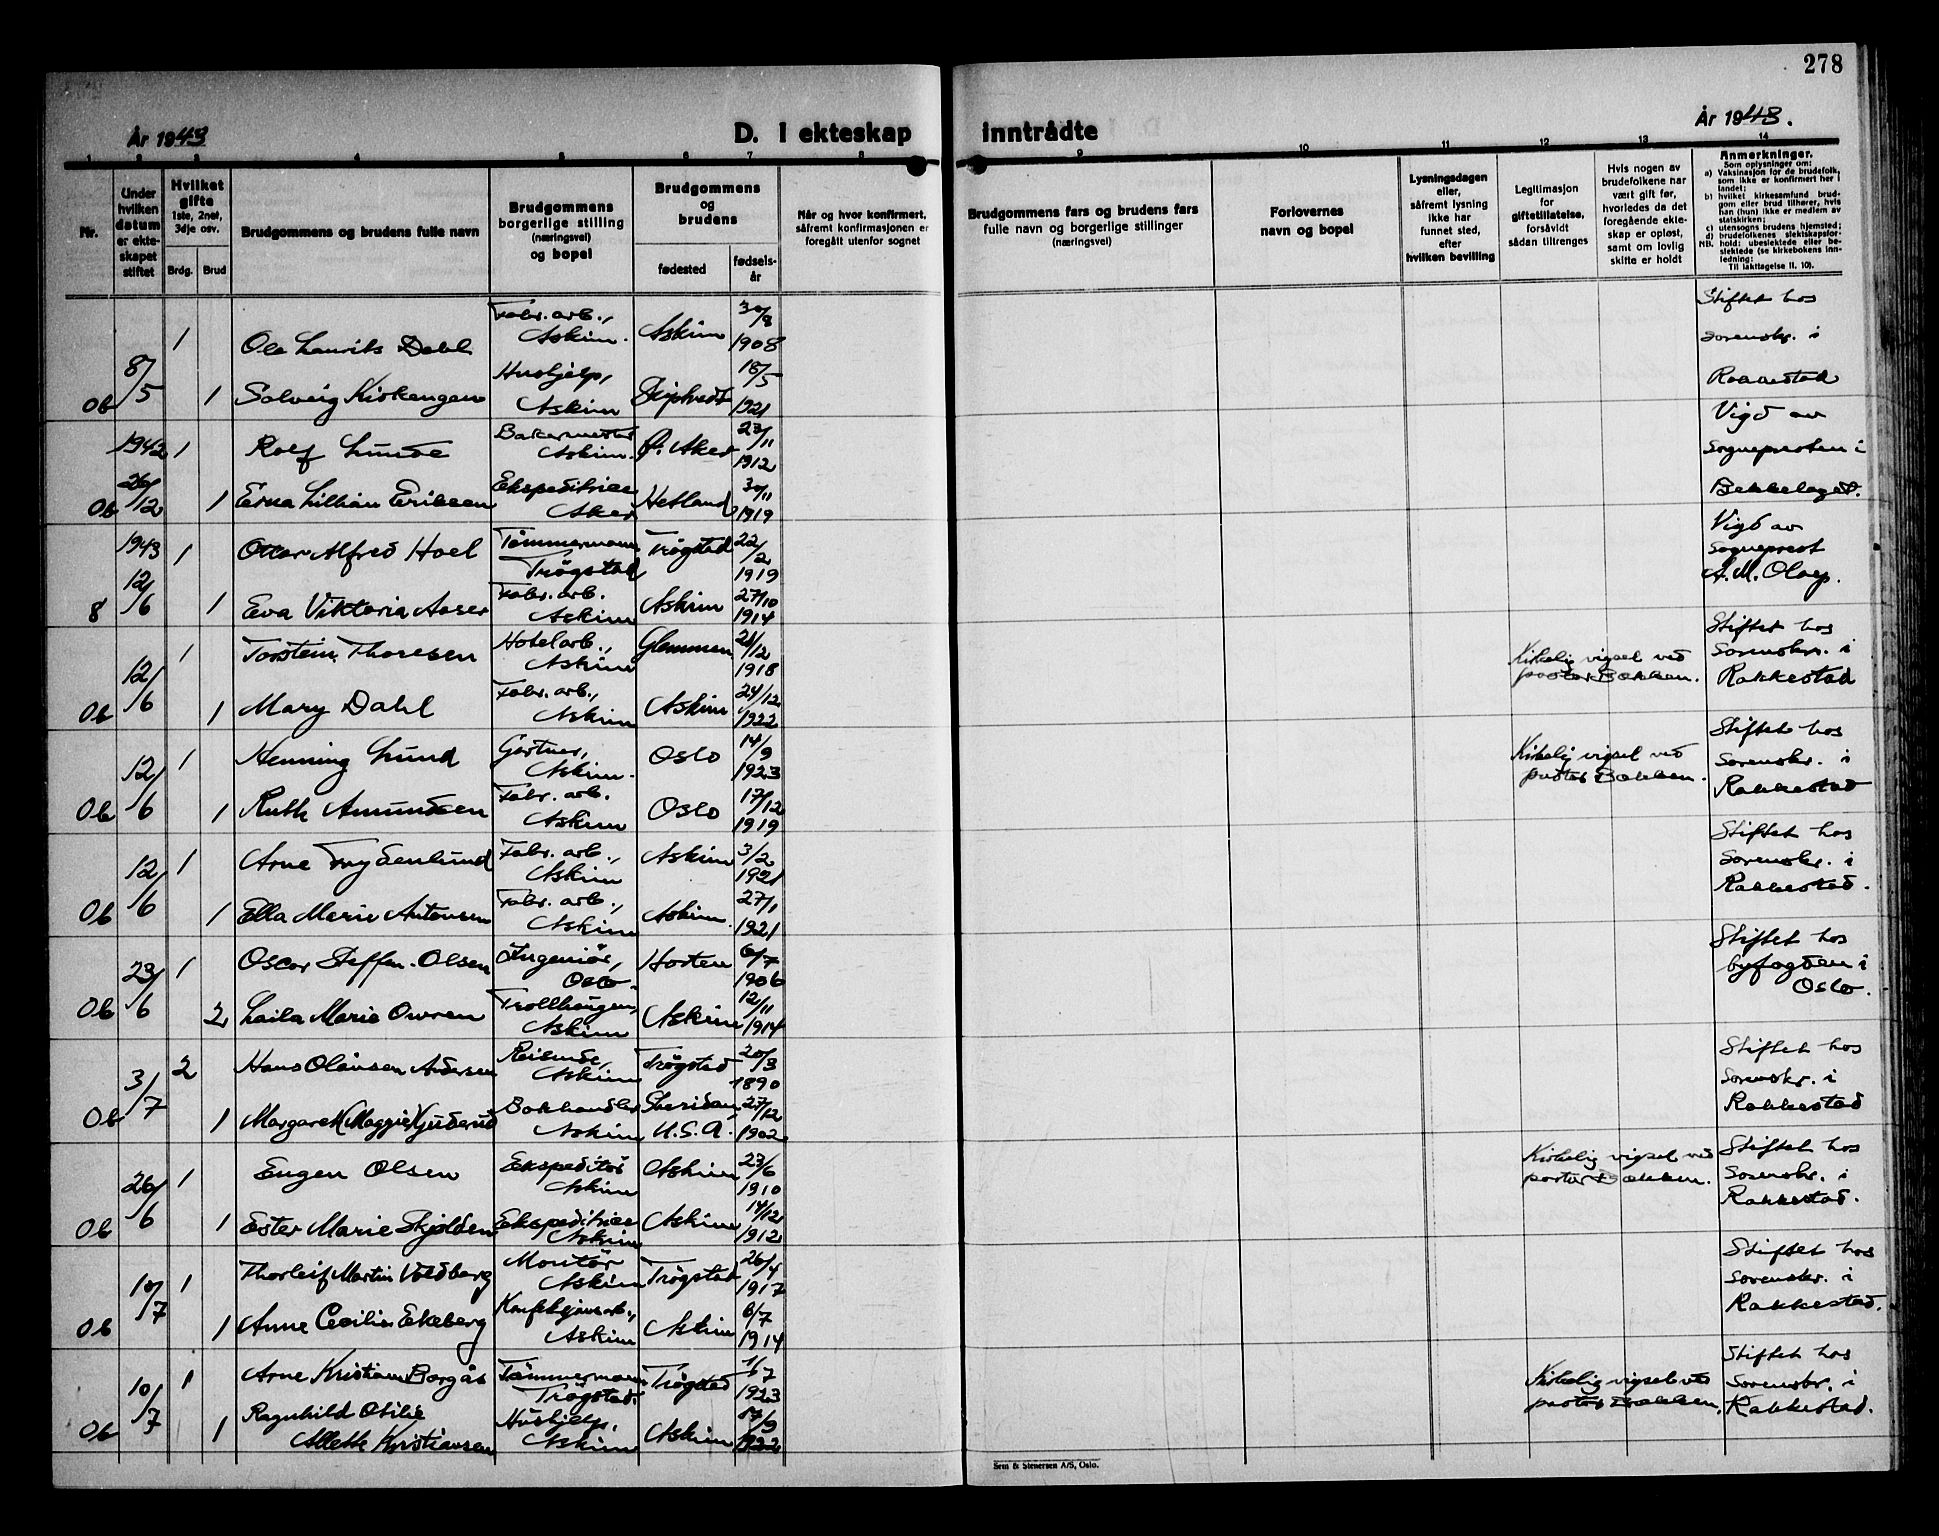 278
År 1943
D. I ekteskap inntrådte
År 1943.
1 2 3 4 5 6 7 8 9 10 11 12 13 14
Nr.
Under hvilken datum er ekteskapet stiftet
Hvilket gifte
1ste, 2net, 3dje osv.
Brdg. Brud
Brudgommens og brudens fulle navn
Brudgommens borgerlige stilling (næringsvei) og bopel
Brudgommens og brudens
fødested
fødselsår
Når og hvor konfirmert, såfremt konfirmasjonen er foregått utenfor sognet
Brudgommens fars og brudens fars fulle navn og borgerlige stillinger (næringsvei)
Forlovernes navn og bopel
Lysningsdagen eller, såfremt lysning ikke har funnet sted, efter hvilken bevilling
Legitimasjon for giftetillatelse, forsåvidt sådan tiltrenges
Hvis nogen av brudefolkene har vært gift før, hvorledes da det foregående ekteskap er opløst, samt om lovlig skifte er holdt
Anmerkninger.
Som oplysninger om:
a) Vaksinasjon for de brudefolk, som ikke er konfirmert her i landet;
b) hvilket kirkesamfund brudgom eller brud tilhører, hvis han (hun) ikke er medlem av statskirken;
c) utensogns brudens hjemsted;
d) brudefolkenes slektskapsforhold: ubeslektede eller beslektede (se kirkebokens innledning;
NB. Til iakttagelse II. 10).
1 Ole Laurits Dahl Fabr. arb., Askim. Askim 30/8 1908
Ob 8/5 1 Solveig Kirkengen Hushjelp, Askim Skiptvedt 18/5 1921
Stiftet hos
sorenskr. i
Rakkestad
1942 1 Rolf Lunde Bakermester Askim. Ø. Aker 23/11 1912
Ob 26/12 1 Erna Lillian Eriksen Ekspeditrise Aker Hetland 30/11 1919
Vigd av
sognepresten i
Bekkelaget.
1943 1 Ottar Alfred Hoel Tømmermann Trøgstad Trøgstad 22/2 1919
8 12/6 1 Eva Viktoria Aaser Fabr. arb. Askim Askim 27/10 1914
Vigd av
sogneprest
A. M. Olay.
1 Torstein Thoresen Hotelarb., Askim Glemmen 21/2 1918
Ob 12/6 1 Mary Dahl Fabr. arb., Askim Askim 24/12 1922
Kirkelig vigsel ved
pastor Bakken.
Stiftet hos
Sorenskr. i
Rakkestad
1 Henning Lund Gartner, Askim. Oslo 14/9 1923
Ob 12/6 1 Ruth Amundsen Fabr. arb. Askim Oslo 17/12 1919
Kirkelig vigsel ved
pastor Bakken.
Stiftet hos
Sorenskr. i
Rakkestad
1 Arne Frydenlund Fabr. arb., Askim Askim 3/2 1921
Ob 12/6 1 Ella Marie Antonsen Fabr. arb., Askim Askim 27/1 1921
Stiftet hos
Sorenskr. i
Rakkestad.
1 Oscar Steffen. Olsen Ingeniør, Oslo. Horten 6/7 1906
Ob 23/6 2 Laila Marie Owren Trollhaugen, Askim Askim 12/11 1914
Stiftet hos
byfogden i
Oslo.
2 Hans Olaussen Andersen Reisende, Askim Trøgstad 20/3 1890
Ob 3/7 1 Margaret (Maggie) Gjuderud Bokhandler Askim Sheridan, U.S.A. 27/12 1902
Stiftet hos
sorenskr. i
Rakkestad
1 Eugen Olsen Ekspeditør Askim Askim 23/6 1910
Ob 26/6 1 Ester Marie Skjolden Ekspeditrise Askim Askim 14/12 1912
Kirkelig vigsel ved
pastor Bakken.
Stiftet hos
Sorenskr. i
Rakkestad.
1 Thorleif Martin Voldberg Montør Askim Trøgstad 26/4 1917
Ob 10/7 1 Anne Cecilie Ekeberg Konfeksjonsarb., Askim Askim 6/7 1914
Stiftet hos
sorenskr. i
Rakkestad.
1 Arne Kristian Borgås Tømmermann Trøgstad. Trøgstad 1/7 1923
Ob 10/7 1 Ragnhild Otilie Allette Kristiansen Hushjelp, Askim Askim 17/9 1922
Kirkelig vigsel ved
pastor Bakken.
Stiftet hos
Sorenskr. i
Rakkestad.
Sem & Stenersen A/S, Oslo.